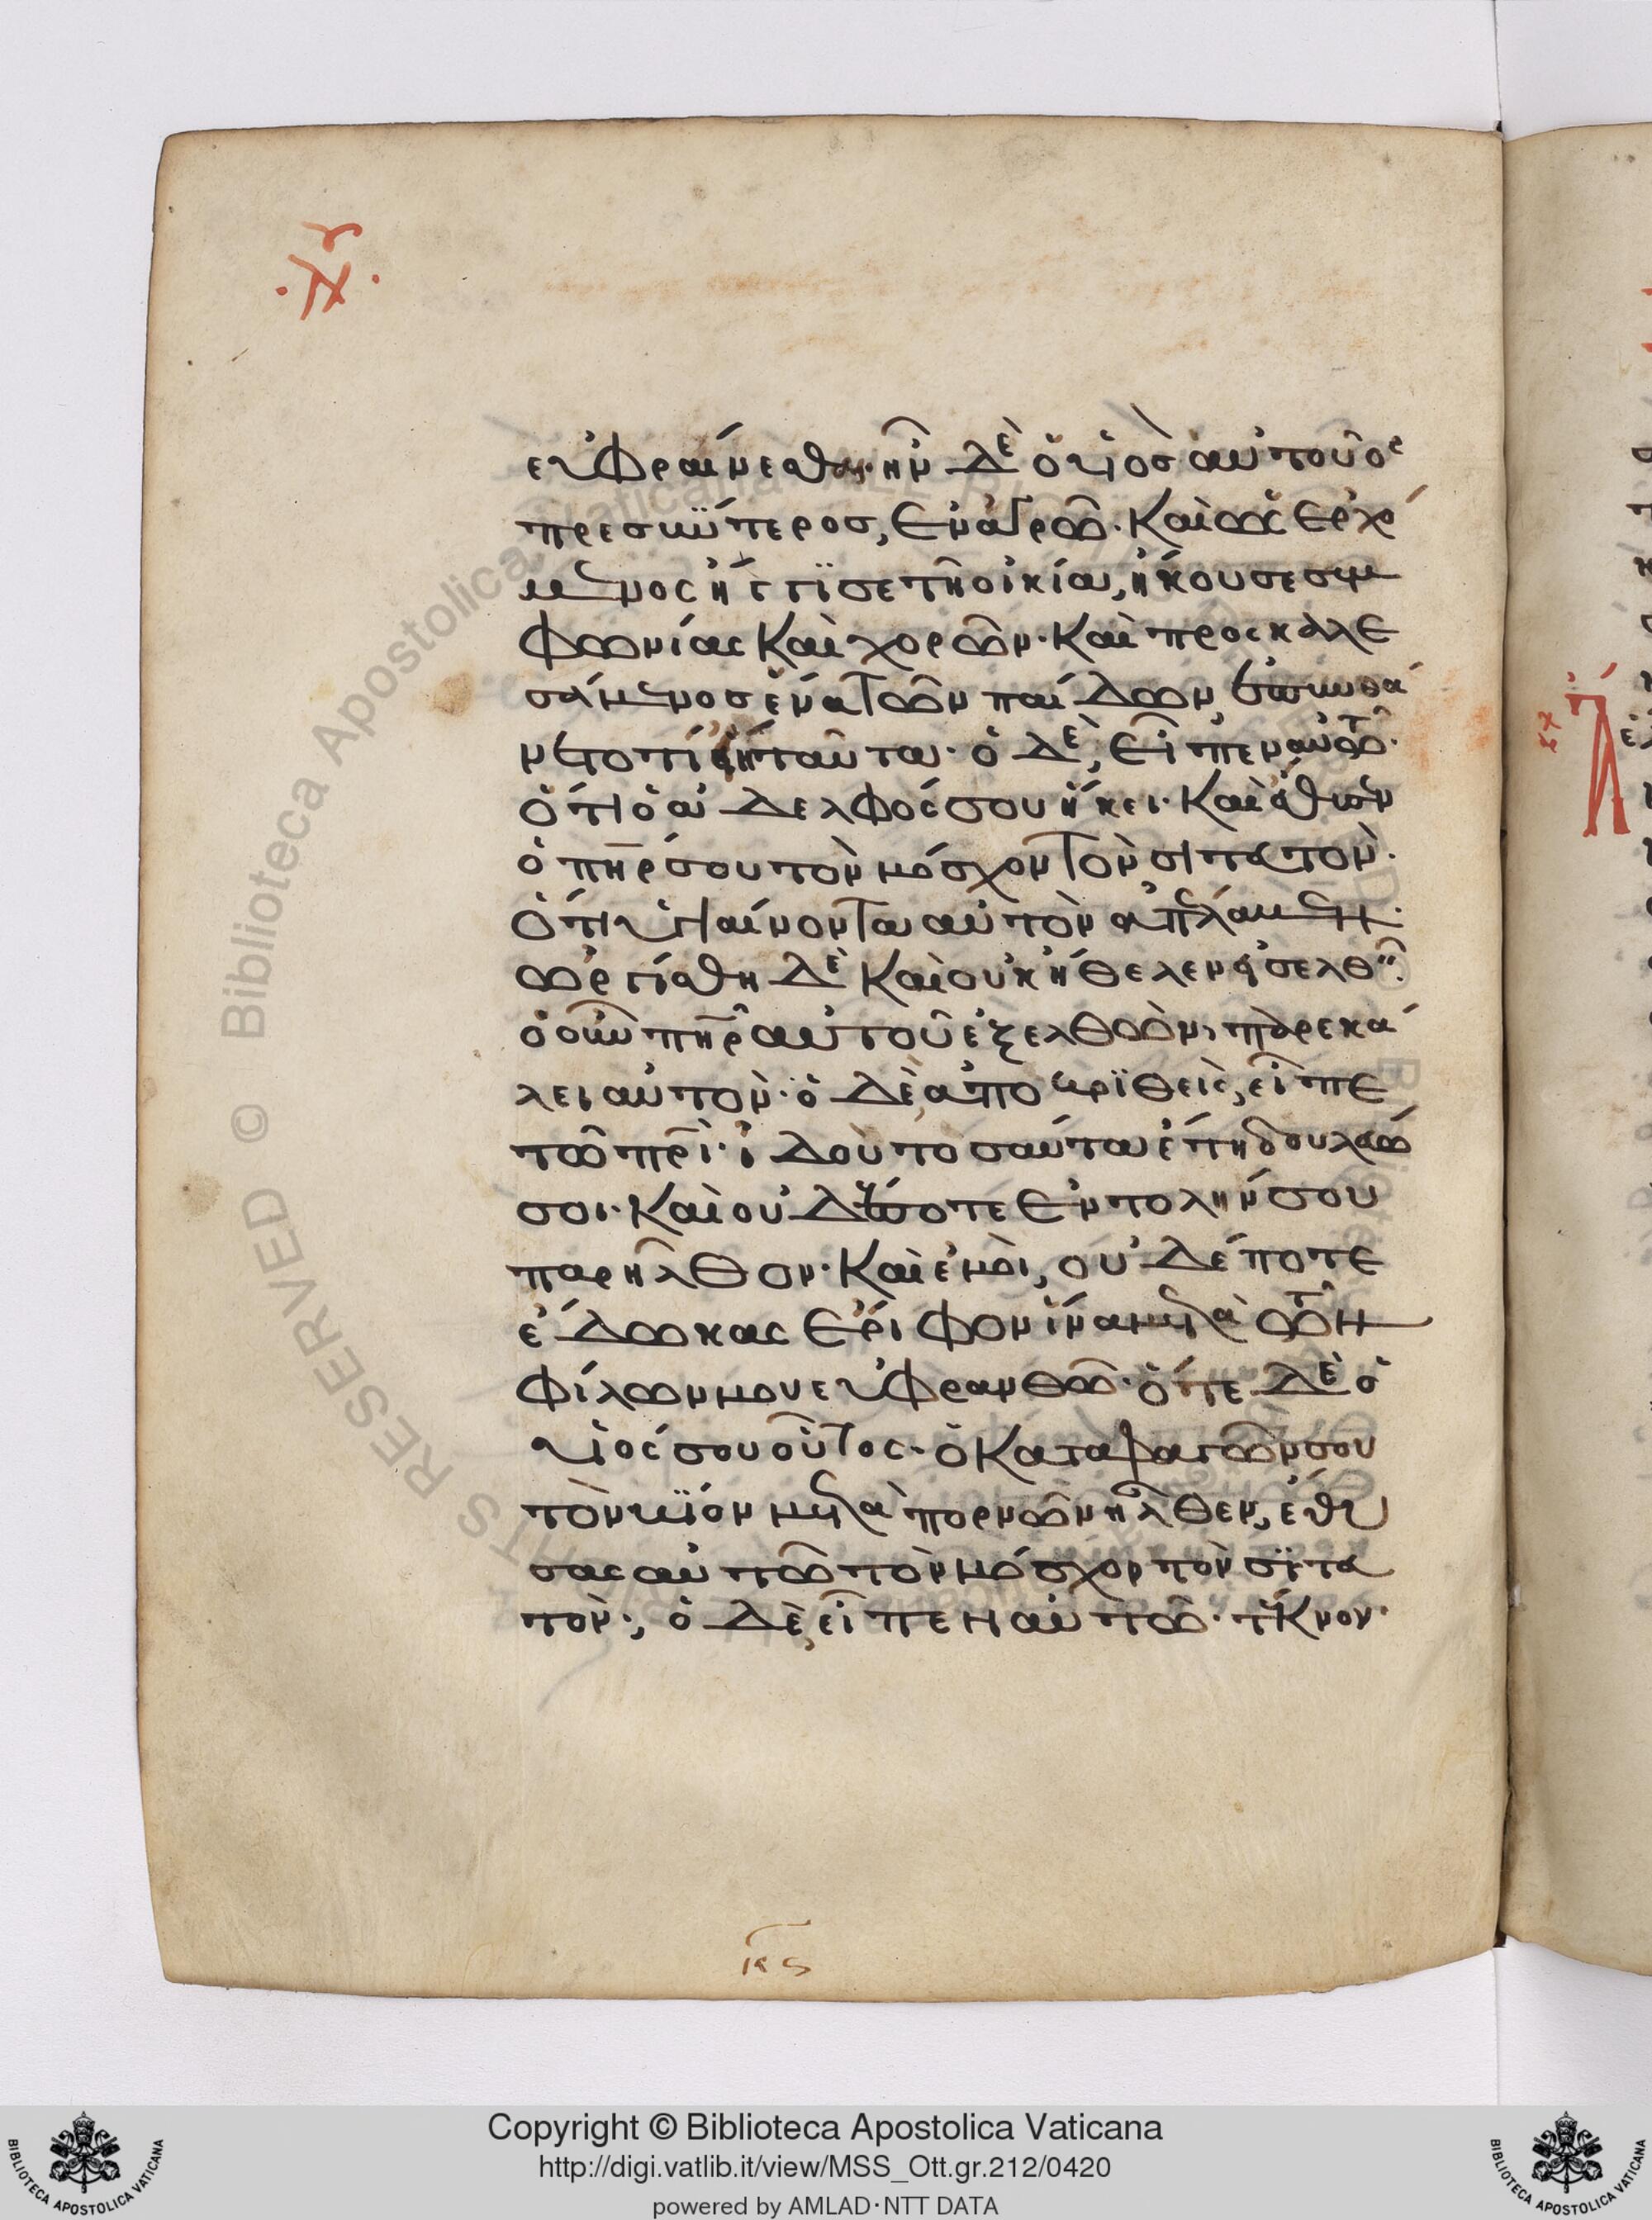 εὐφραίνεσθαι· ἦν δὲ ὁ υἱὸσ αὐτοῦ ὁ
πρεσβύτεροσ, ἐν ἀγρῶ· καὶ ὡς ἐρχό
μενος ἤγγϊσε τῆ οἰκία, ἤκουσε συμ
φωνίας καὶ χορῶν· καὶ προσκαλε
σάμενοσ ἕνα τῶν παίδων, ἐπυνθά
νετο τί εἴη ταῦτα· ὁ δὲ, εἶπεν αὐτῶ·
ὅτι ὁ ἀδελφός σου ἥκει· καὶ ἔθυσεν
ὁ πηρ σου τὸν μόσχον τὸν σιτευτὸν·
ὅτι ὑγιαίνοντα αὐτὸν ἀπέλαβεν·
ὠργίσθη δὲ καὶ οὐκ ἤθελεν εἰσελθεῖν·
ὁ οὖν πηρ αὐτοῦ ἐξελθὼν, παρεκά
λει αὐτὸν· ὁ δὲ ἀποκρϊθεὶς, εἶπε
τῶ πρι· ἰδοὺ τοσαῦτα ἔτη δουλεύω
σοι· καὶ οὐδέποτε ἐντολήν σου
παρῆλθον· καὶ ἐμοὶ, οὐδέποτε
ἔδωκας ἔριφον ἵνα μετὰ τῶν
φίλων μου εὐφρανθῶ· ὅτε δὲ ὁ
υἱός σου οὗτος· ὁ καταφαγών σου
τὸν βίον μετὰ πορνῶν ἦλθεν, ἔθυ
σας αὐτῶ τὸν μόσχον τὸν σιτευ
τὸν·, ὁ δὲ εἶπεν αὐτῶ· τέκνον·
κς
Copyright © Biblioteca Apostolica Vaticana
http://digi.vatlib.it/view/MSS_Ott.gr.212/0420
powered by AMLAD·NTT DATA